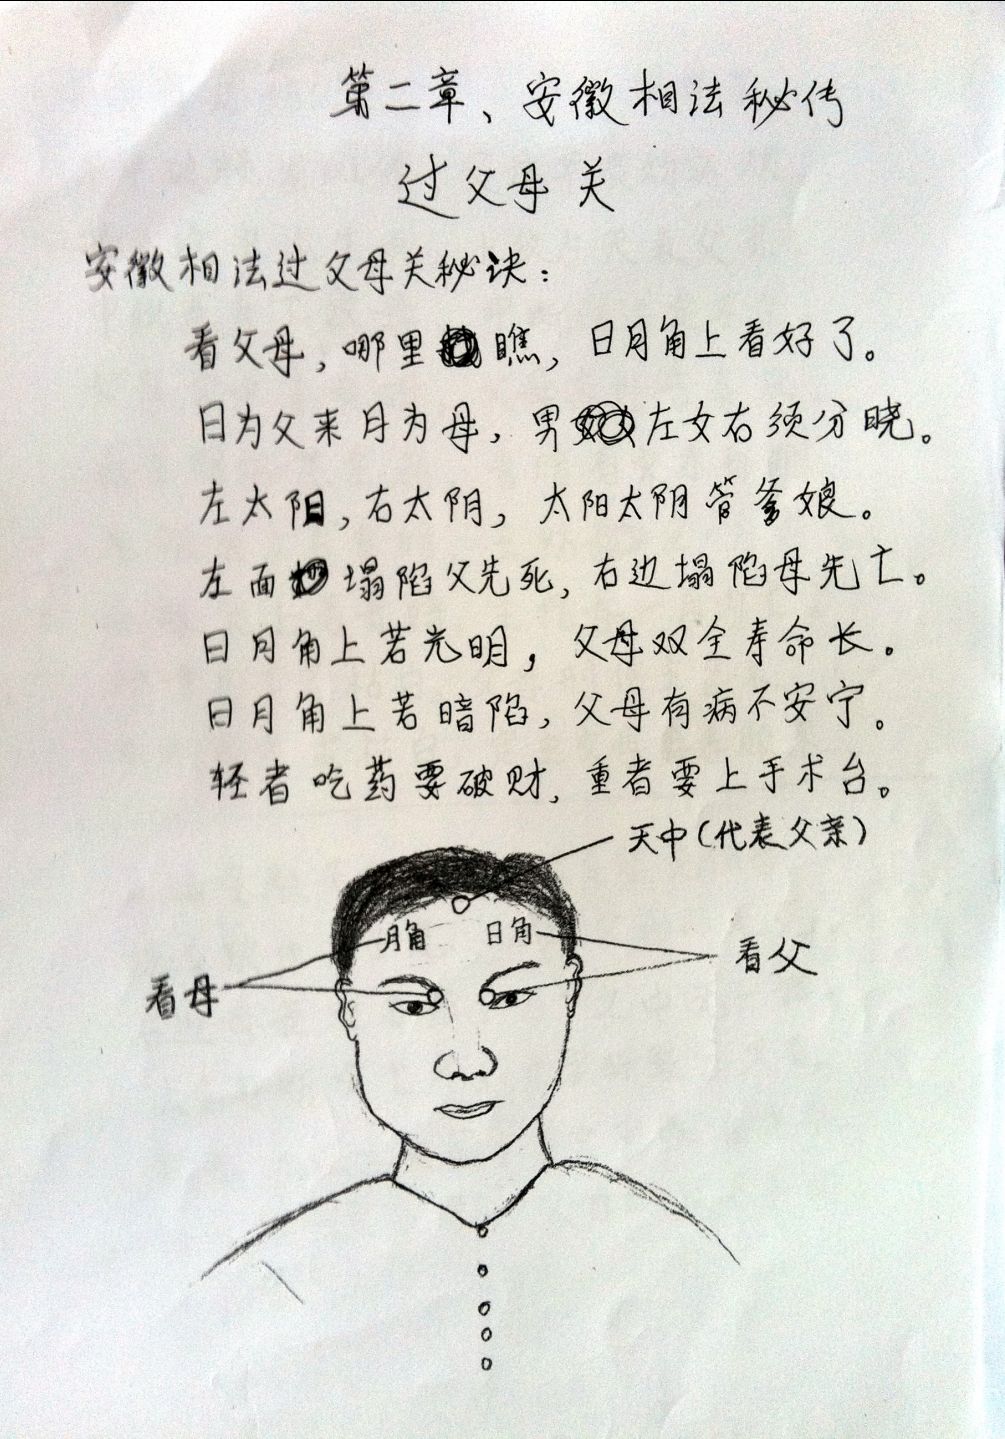 第二章、安徽相法秘传
过父母关
安徽相法过父母关秘诀：
看父母，哪里瞧，日月角上看好了。
日为父来月为母，男左女右须分晓。
左太阳，右太阴，太阳太阴管爹娘。
左面塌陷父先死，右边塌陷母先亡。
日月角上若光明，父母双全寿命长。
日月角上若暗陷，父母有病不安宁。
轻者吃药要破财，重者要上手术台。
天中（代表父亲）
月角
日角
看父
看母